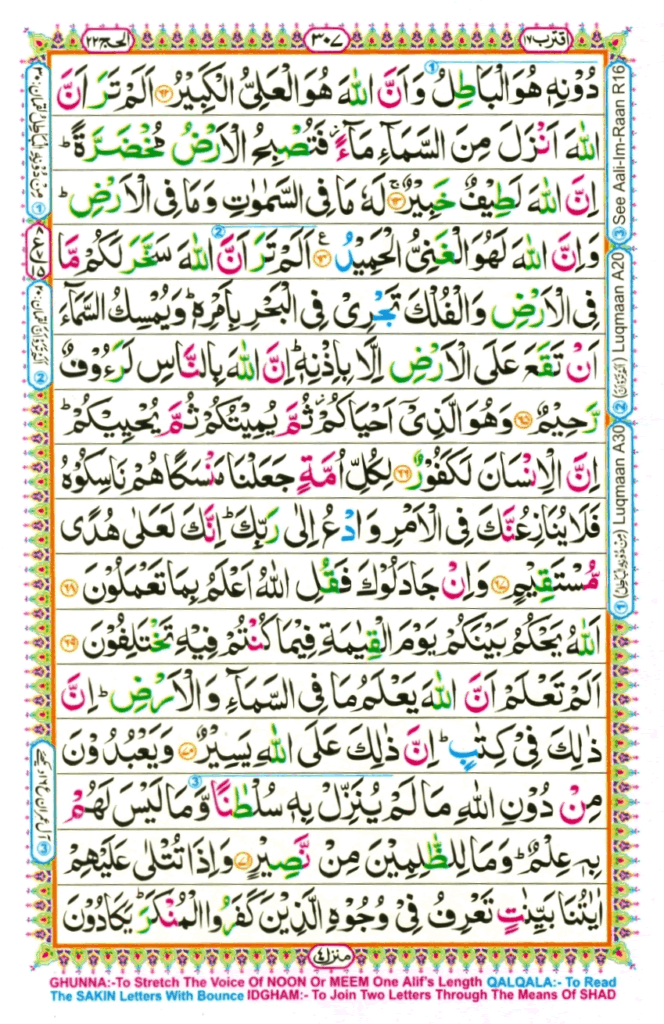 الحج ٢٢
٣٠٧
اقترب ١٧
دُوْنِهٖ هُوَ الْبَاطِلُ وَاَنَّ اللّٰهَ هُوَ الْعَلِيُّ الْكَبِيْرُ ﴿۶۲﴾ اَلَمْ تَرَ اَنَّ
اللّٰهَ اَنْزَلَ مِنَ السَّمَآءِ مَآءً ؗ فَتُصْبِحُ الْاَرْضُ مُخْضَرَّةً ؕ
اِنَّ اللّٰهَ لَطِيْفٌ خَبِيْرٌ ﴿۶۳﴾ لَهٗ مَا فِي السَّمٰوٰتِ وَمَا فِي الْاَرْضِ ؕ
وَاِنَّ اللّٰهَ لَهُوَ الْغَنِيُّ الْحَمِيْدُ ﴿۶۴﴾ اَلَمْ تَرَ اَنَّ اللّٰهَ سَخَّرَ لَكُمْ مَّا
فِي الْاَرْضِ وَالْفُلْكَ تَجْرِيْ فِي الْبَحْرِ بِاَمْرِهٖ ؕ وَيُمْسِكُ السَّمَآءَ
اَنْ تَقَعَ عَلَى الْاَرْضِ اِلَّا بِاِذْنِهٖ ؕ اِنَّ اللّٰهَ بِالنَّاسِ لَرَءُوْفٌ
رَّحِيْمٌ ﴿۶۵﴾ وَهُوَ الَّذِيْۤ اَحْيَاكُمْ ؗ ثُمَّ يُمِيْتُكُمْ ثُمَّ يُحْيِيْكُمْ ؕ
اِنَّ الْاِنْسَانَ لَكَفُوْرٌ ﴿۶۶﴾ لِكُلِّ اُمَّةٍ جَعَلْنَا مَنْسَكًا هُمْ نَاسِكُوْهُ
فَلَا يُنَازِعُنَّكَ فِي الْاَمْرِ وَادْعُ اِلٰى رَبِّكَ ؕ اِنَّكَ لَعَلٰى هُدًى
مُّسْتَقِيْمٍ ﴿۶۷﴾ وَاِنْ جَادَلُوْكَ فَقُلِ اللّٰهُ اَعْلَمُ بِمَا تَعْمَلُوْنَ ﴿۶۸﴾
اَللّٰهُ يَحْكُمُ بَيْنَكُمْ يَوْمَ الْقِيٰمَةِ فِيْمَا كُنْتُمْ فِيْهِ تَخْتَلِفُوْنَ ﴿۶۹﴾
اَلَمْ تَعْلَمْ اَنَّ اللّٰهَ يَعْلَمُ مَا فِي السَّمَآءِ وَالْاَرْضِ ؕ اِنَّ
ذٰلِكَ فِيْ كِتٰبٍ ؕ اِنَّ ذٰلِكَ عَلَى اللّٰهِ يَسِيْرٌ ﴿۷۰﴾ وَيَعْبُدُوْنَ
مِنْ دُوْنِ اللّٰهِ مَا لَمْ يُنَزِّلْ بِهٖ سُلْطٰنًا وَّمَا لَيْسَ لَهُمْ
بِهٖ عِلْمٌ ؕ وَمَا لِلظّٰلِمِيْنَ مِنْ نَّصِيْرٍ ﴿۷۱﴾ وَاِذَا تُتْلٰى عَلَيْهِمْ
اٰيٰتُنَا بَيِّنٰتٍ تَعْرِفُ فِيْ وُجُوْهِ الَّذِيْنَ كَفَرُوا الْمُنْكَرَ ؕ يَكَادُوْنَ
③ See Aali-Im-Raan R16
② Luqmaan A20
① Luqmaan A30 (مِنْ دُوْنِهِ الْبَاطِلُ)
منزل ٤
GHUNNA:-To Stretch The Voice Of NOON Or MEEM One Alif's Length QALQALA:- To Read
The SAKIN Letters With Bounce IDGHAM:- To Join Two Letters Through The Means Of SHAD